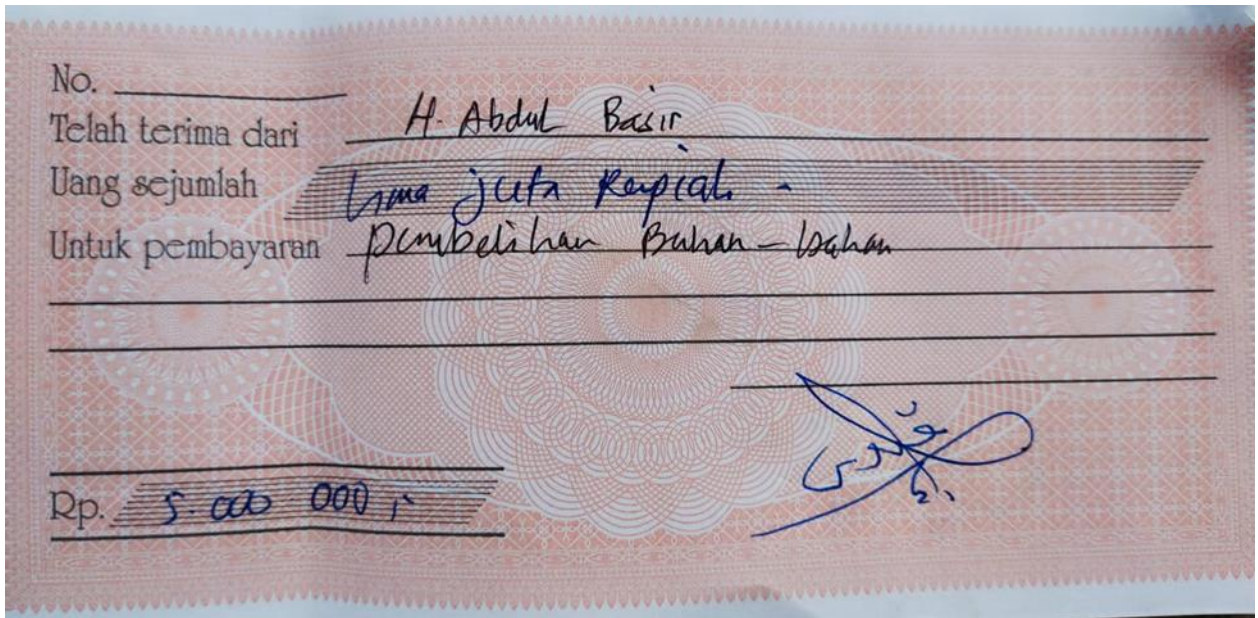 No.
Telah terima dari H. Abdul Basir
Uang sejumlah Lima juta Rupiah -
Untuk pembayaran pembelihan Bahan - bahan
Rp. 5.000 000 ;